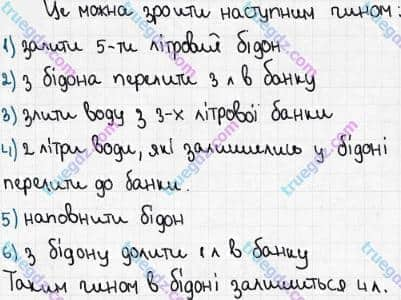 Це можна зроити наступним чином:
1) залити 5-ти літровий бідон
2) з бідона перелити 3 л в банку
3) злити воду з 3-х літрової банки
4) 2 літри води, які залишились у бідоні
перелити до банки.
5) наповнити бідон
6) з бідону долити 1 л в банку
Таким чином в бідоні залишиться 4 л.
truegdz.com